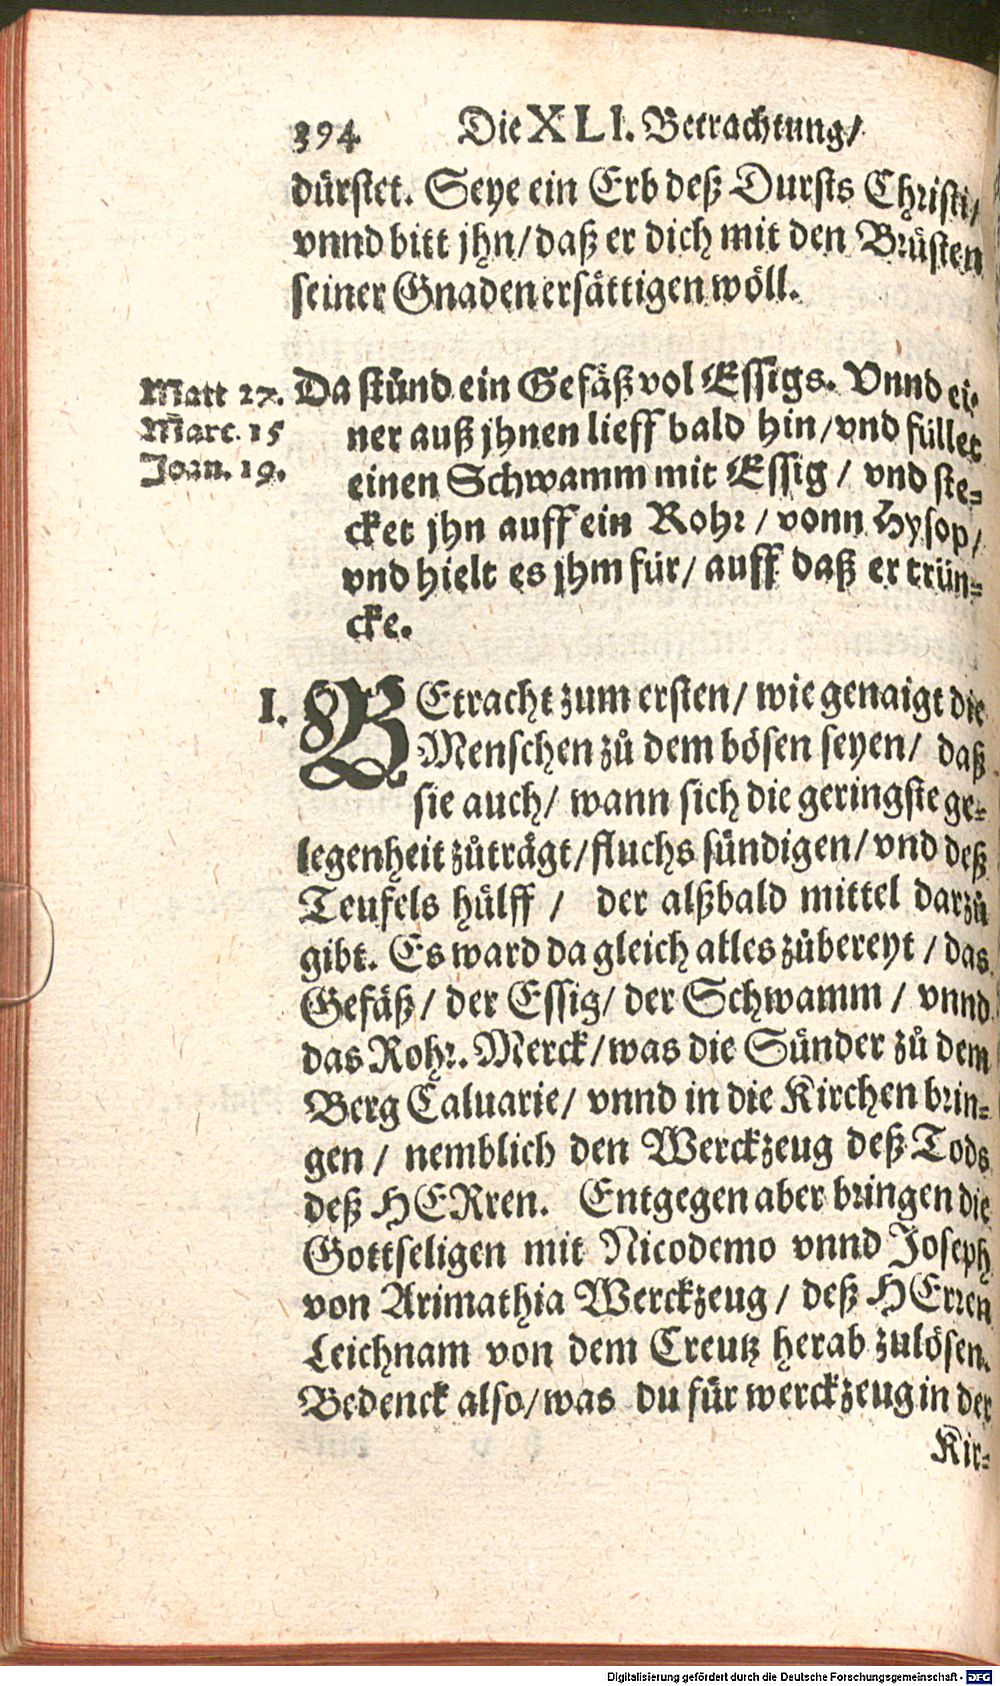 394 Die XLI. Betrachtung/
dürstet. Seye ein Erb deß Dursts Christi/
vnnd bitt jhn/ daß er dich mit den Brüsten
seiner Gnaden ersättigen wöll.
Matt 27. Da stůnd ein Gefäß vol Essigs. Vnnd ei-
Marc. 15 ner auß jhnen lieff bald hin/ vnd füllet
Joan. 19. einen Schwamm mit Essig / vnd ste-
cket jhn auff ein Rohr / vonn Hysop/
vnd hielt es jhm für/ auff daß er trün-
cke.
I. BEtracht zum ersten/ wie genaigt die
Menschen zů dem bösen seyen/ daß
sie auch/ wann sich die geringste ge-
legenheit zůträgt/ fluchs sündigen/ vnd deß
Teufels hülff / der alßbald mittel darzů
gibt. Es ward da gleich alles zůbereyt / das
Gefäß / der Essig/ der Schwamm / vnnd
das Rohr. Merck/ was die Sünder zů dem
Berg Caluarie/ vnnd in die Kirchen brin-
gen / nemblich den Werckzeug deß Tods
deß HERren. Entgegen aber bringen die
Gottseligen mit Nicodemo vnnd Joseph
von Arimathia Werckzeug / deß HErren
Leichnam von dem Creutz herab zulösen.
Bedenck also/ was du für werckzeug in der
Kir-
Digitalisierung gefördert durch die Deutsche Forschungsgemeinschaft - DFG